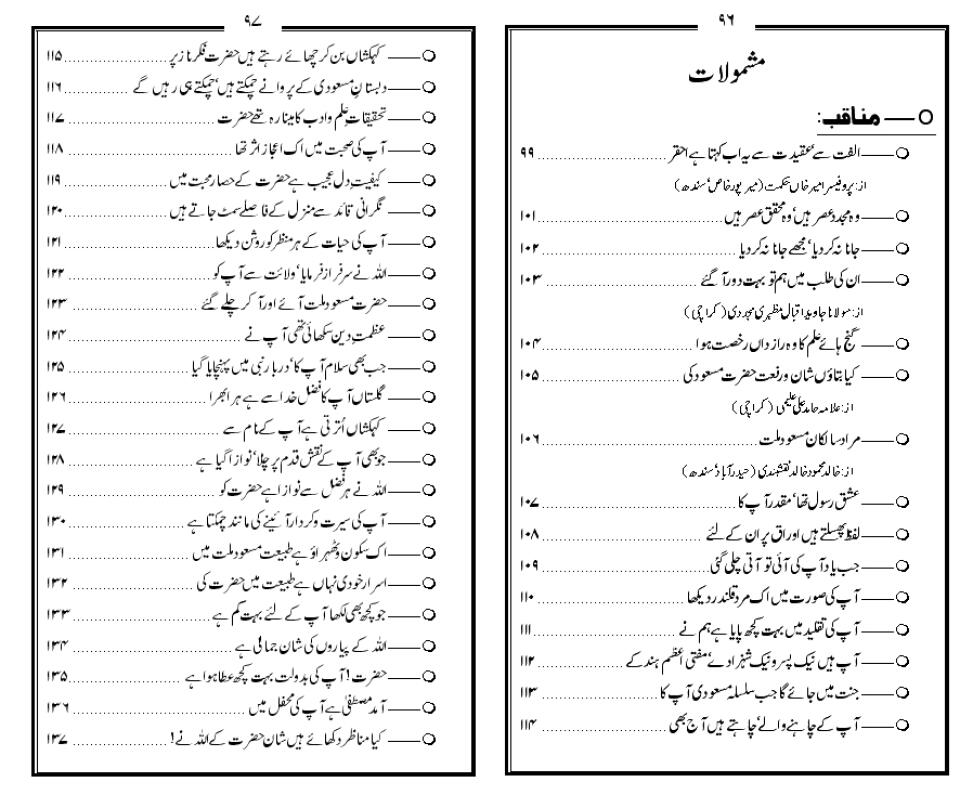 ۹۶
مشمولات
مناقب:
الفت سے‘ عقیدت سے یہ اب کہتا ہے احقر ۹۹
از: پروفیسر امیر خاں حکمت (میر پور خاص‘ سندھ)
وہ مجدد عصر ہیں‘ وہ محقق عصر ہیں ۱۰۱
جانا نہ کر دیا‘ مجھے جانا نہ کر دیا ۱۰۲
ان کی طلب میں ہم تو بہت دور آگئے ۱۰۳
از: مولانا جاوید اقبال مظہری مجددی (کراچی)
گنج ہائے علم کا وہ رازداں رخصت ہوا ۱۰۴
کیا بتاؤں شان و رفعت حضرت مسعود کی ۱۰۵
از: علامہ حامد علی علیمی (کراچی)
مراد سالکان مسعود ملت ۱۰۶
از: خالد محمود خالد نقشبندی (حیدرآباد‘ سندھ)
عشق رسول تھا‘ مقدر آپ کا ۱۰۷
لفظ پھسلتے ہیں اوراق پر ان کے لئے ۱۰۸
جب یاد آپ کی آئی تو آتی چلی گئی ۱۰۹
آپ کی صورت میں اک مرد قلندر دیکھا ۱۱۰
آپ کی تقلید میں بہت کچھ پایا ہے ہم نے ۱۱۱
آپ ہیں نیک پسر و نیک شہزادے‘ مفتی اعظم ہند کے ۱۱۲
جنت میں جائے گا جب سلسلہ مسعودی آپ کا ۱۱۳
آپ کے چاہنے والے‘ چاہتے ہیں آج بھی ۱۱۴
۹۷
کہکشاں بن کر چھائے رہتے ہیں حضرت فکر ناز پر ۱۱۵
دبستانِ مسعودی کے پروانے چمکتے ہیں‘ چمکتے ہی رہیں گے ۱۱۶
تحقیقاتِ علم و ادب کا مینارہ تھے حضرت ۱۱۷
آپ کی صحبت میں اک اعجاز اثر تھا ۱۱۸
کیفیتِ دل عجیب ہے حضرت کے حصار محبت میں ۱۱۹
نگرانی قائد سے منزل کے فاصلے سمٹ جاتے ہیں ۱۲۰
آپ کی حیات کے ہر منظر کو روشن دیکھا ۱۲۱
اللہ نے سرفراز فرمایا‘ ولائت سے آپ کو ۱۲۲
حضرت مسعود ملت آئے اور آ کر چلے گئے ۱۲۳
عظمتِ دین سکھائی تھی آپ نے ۱۲۴
جب بھی سلام آپ کا‘ دربار نبی میں پہنچایا گیا ۱۲۵
گلستاں آپ کا فضل خدا سے ہے ہرا بھرا ۱۲۶
کہکشاں اُترتی ہے آپ کے نام سے ۱۲۷
جو بھی آپ کے نقش قدم پر چلا‘ نوازا گیا ہے ۱۲۸
اللہ نے ہر فضل سے نوازا ہے حضرت کو ۱۲۹
آپ کی سیرت و کردار آئینے کی مانند چمکتا ہے ۱۳۰
اک سکون و ٹھہراؤ ہے طبیعت مسعود ملت میں ۱۳۱
اسرار خودی نہاں ہے طبیعت میں حضرت کی ۱۳۲
جو کچھ بھی لکھا آپ کے لئے بہت کم ہے ۱۳۳
اللہ کے پیاروں کی شان جمالی ہے ۱۳۴
حضرت! آپ کی بدولت بہت کچھ عطا ہوا ہے ۱۳۵
آمد مصطفیٰ ہے آپ کی محفل میں ۱۳۶
کیا مناظر دکھائے ہیں شان حضرت کے اللہ نے! ۱۳۷